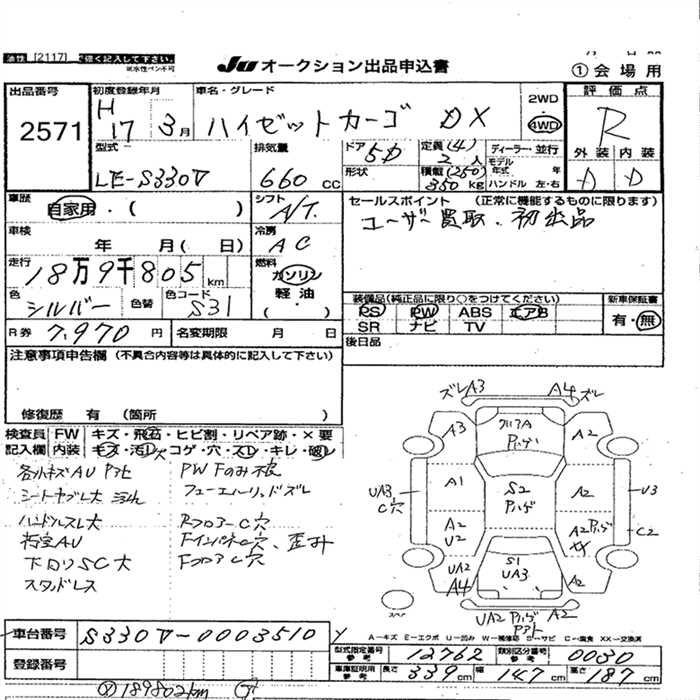 油性 [2117] で強く記入して下さい。
※水性ペン不可
JU オークション出品申込書
① 会 場 用
出品番号 2571
初度登録年月 H 17 3月
車名・グレード ハイゼットカーゴ DX
2WD
4WD
評 価 点 R
外 装 内 装
D D
型式 LE-S330V
排気量 660 cc
ドア 5D
形状
定員(4) 2 人
積載(250) 350 kg
ディーラー・並行
モデル年式 年
ハンドル 左・右
車歴 自家用・( )
シフト A/T
セールスポイント (正常に機能するものに限ります)
ユーザー買取、初出品
車検 年 月( 日)
冷房 AC
走行 18万9千805km
燃料 ガソリン
軽 油
( )
色 シルバー 色替
色コード S31
装備品(純正品に限り○をつけてください)
PS PW ABS エアB
SR ナビ TV
新車保証書
有・無
R券 7,970 円
名変期限 月 日
後日品
注意事項申告欄 (不具合内容等は具体的に記入して下さい)
修復歴 有 (箇所 )
検査員 FW キズ・飛石・ヒビ割・リペア跡・×要
記入欄 内装 キズ・汚レ・コゲ・穴・スレ・キレ・破レ
各小キズAU Pアト
シートヤブレ大 汚れ
ハンドルスレ大
荷室AU
下回りSC大
スタッドレス
PW Fのみ穴
フューエルリッドズレ
RフロアーC穴
FインパネC穴、歪み
FフロアC穴
ズレ A3
A4 ズレ
A3
A2
A1
S2
A2
UA3
C穴
U3
C2
A2
U2
A2
XX
UA2
A4
S1
UA3
A2
UA2
A2
スペア
車台番号 S330V-0003510
A－キズ E－エクボ U－凹み W－補修跡 S－サビ C－腐食 XX－交換済
型式指定番号 参考 12762
類別区分番号 参考 0030
登録番号
車庫証明用 参考 長さ 339cm 幅 147cm 高さ 187cm
189802km